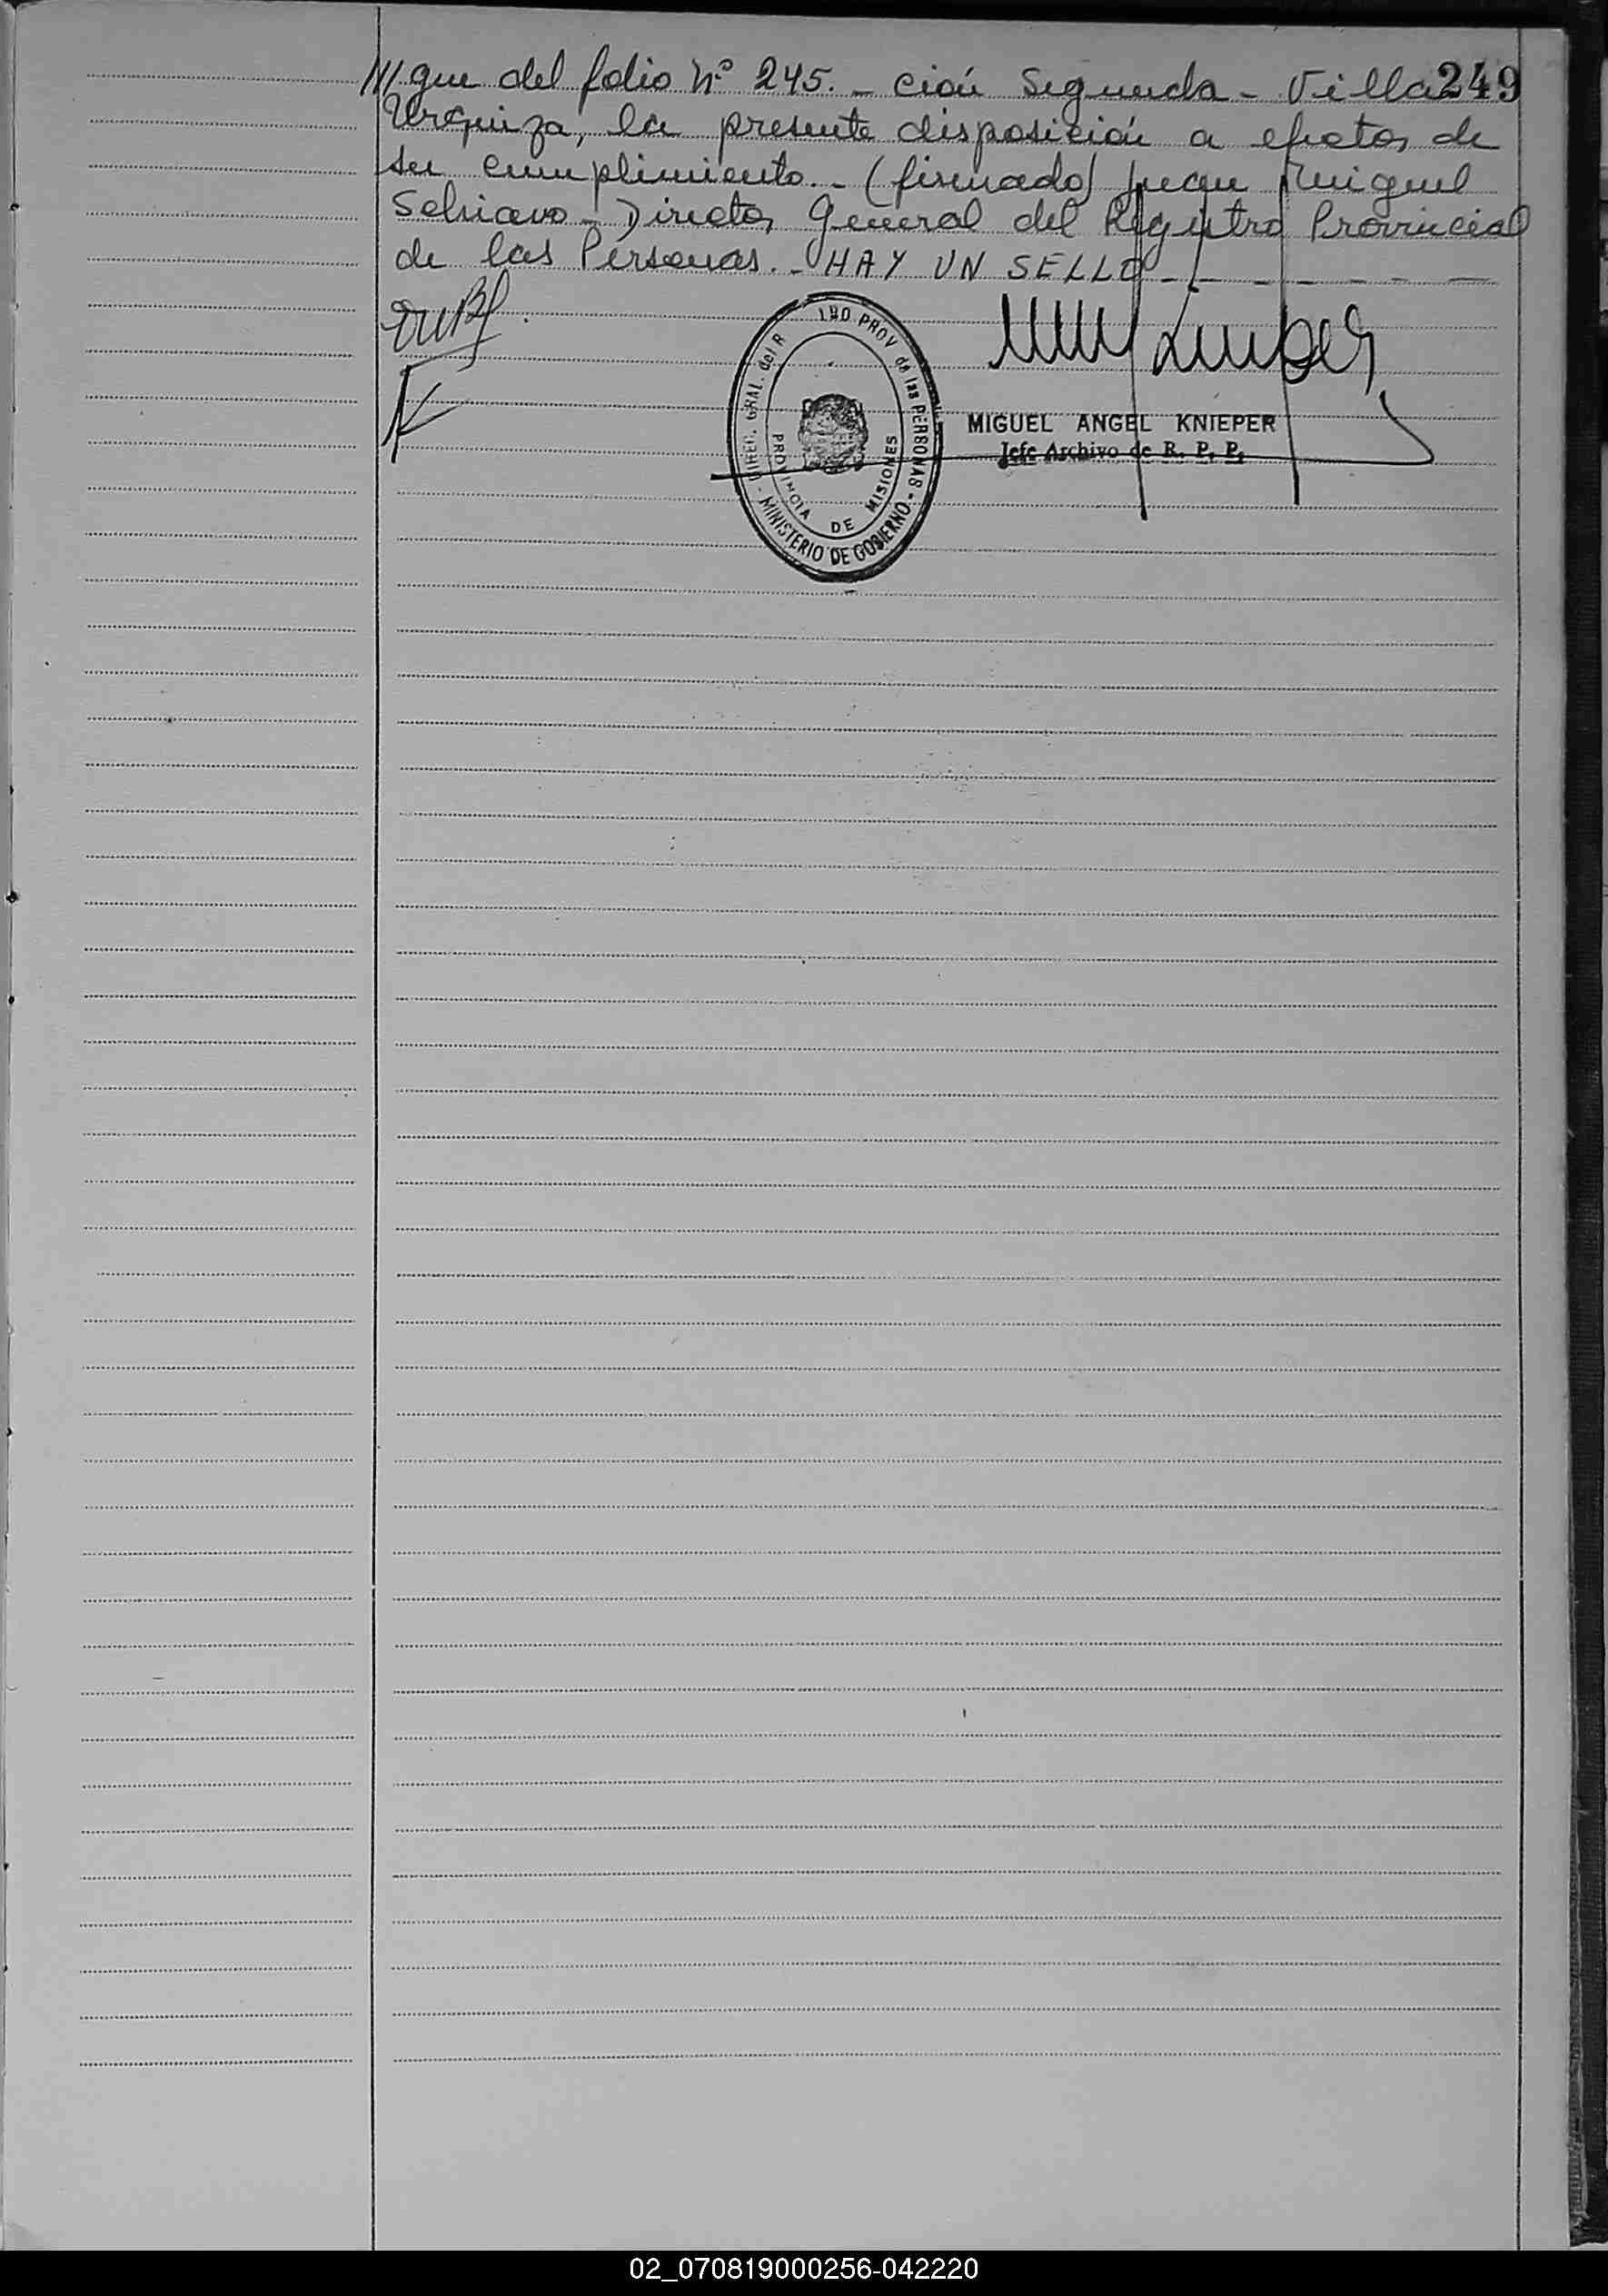 ///gue del folio Nº 245. - ción Segunda - Villa 249
Urquiza, la presente disposición a efectos de
su cumplimiento. - (firmado) Juan Miguel
Schiavo - Director General del Registro Provincial
de las Personas. - HAY UN SELLO - - - - - -
DIREC. GRAL. del R PROV de las PERSONAS - MINISTERIO DE GOBIERNO -
PROVINCIA DE MISIONES
MIGUEL ANGEL KNIEPER
Jefe Archivo de R. P. P.
02_070819000256-042220